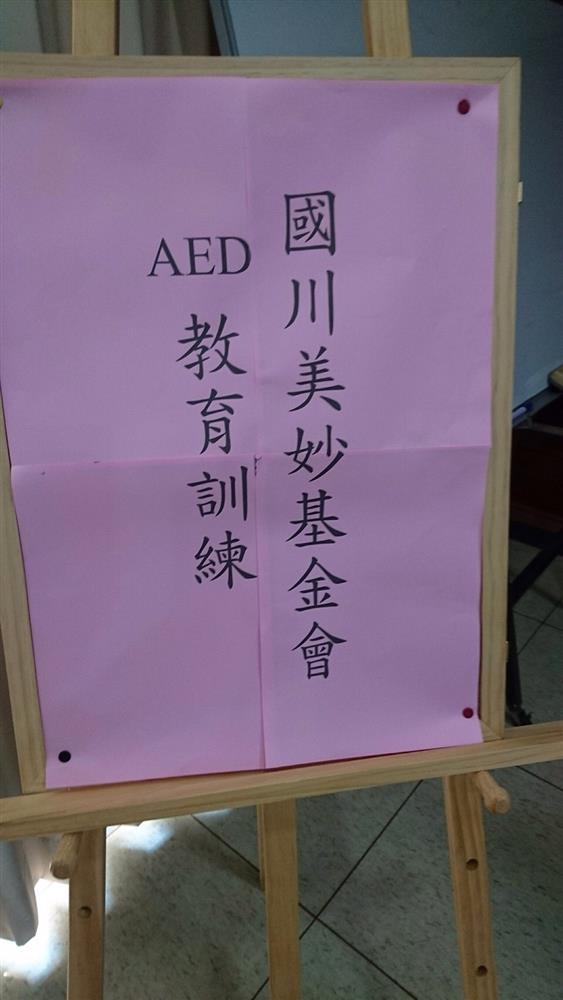 國川美妙基金會
AED教育訓練